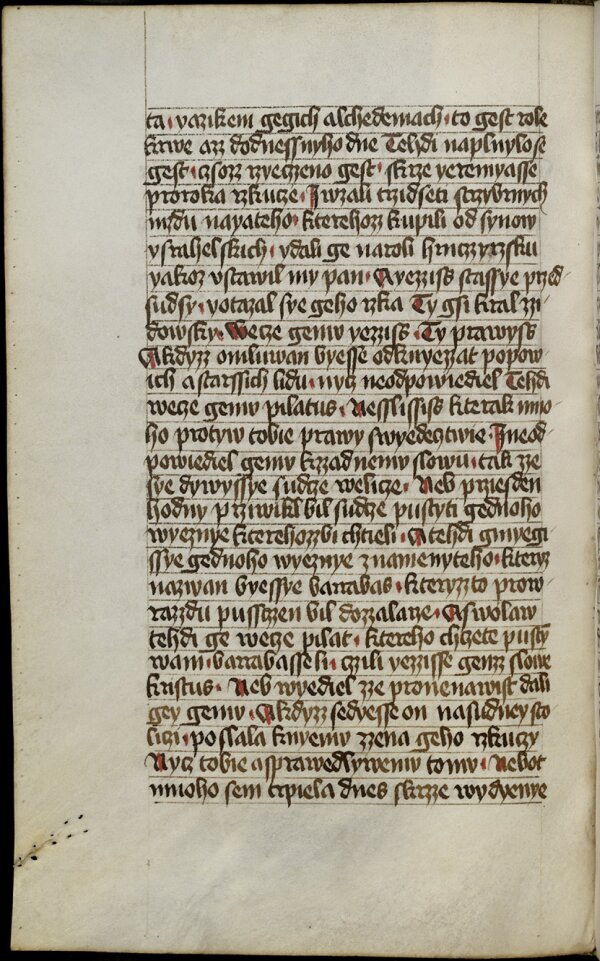 ta · yazikem gegich alchedemach · to gest role
krwe arz dodnessnyho dne Tehdi naplnylo se
gest · czsorz rzyeczeno gest · skrze yeremyasse
proroka rzkucze · I wzali trzidseti strzybrnych
mzdu nayateho · kterehorz kupili od synow
ysrahelskich · ydali ge naroli hrnczyrzsku
yakoz vstawil my pan · A yezziss stassye przed
sudsy · yotazal sye geho rzka Ty gsi kral zzi
dowsky · Wecze gemv yezziss · Ty prawyss
A kdyzz omluwan byesse odknyezzat popow
ich a starssich lidu · nycz neodpowiediel Tehdi
wecze gemv pilatus · Neslississ kterak mno
ho protyw tobie prawy swyedecztwie · I neod
powiediel gemv kzzadnemv slowu · tak zze
sye dywyssye sudcze welicze · Neb prziesden
hodny prziwikl bil sudcze pustyti gednoho
wyeznye kterehozzbi chtieli · A tehdi gmyegi
ssye gednoho wyeznye znamenyteho · kteryz
nazwan byessye barrabas · kteryzzto prow
razzdu pusstzen bil dozzalarze · A swolaw
tehdi ge wecze pilat · ktereho chczete pusty
wam · barrabasse li · czzili yezzisse genzz slowe
kristus · Neb wyediel zze pronenawist dali
gey gemv · A kdyzz sedyesse on nasudney sto
liczi · poslala knyemv zzena geho rzkuczy
Nycz tobie asprawedlywemv tomv · Nebot
mnoho sem trpiela dnes skrzze wydyenye